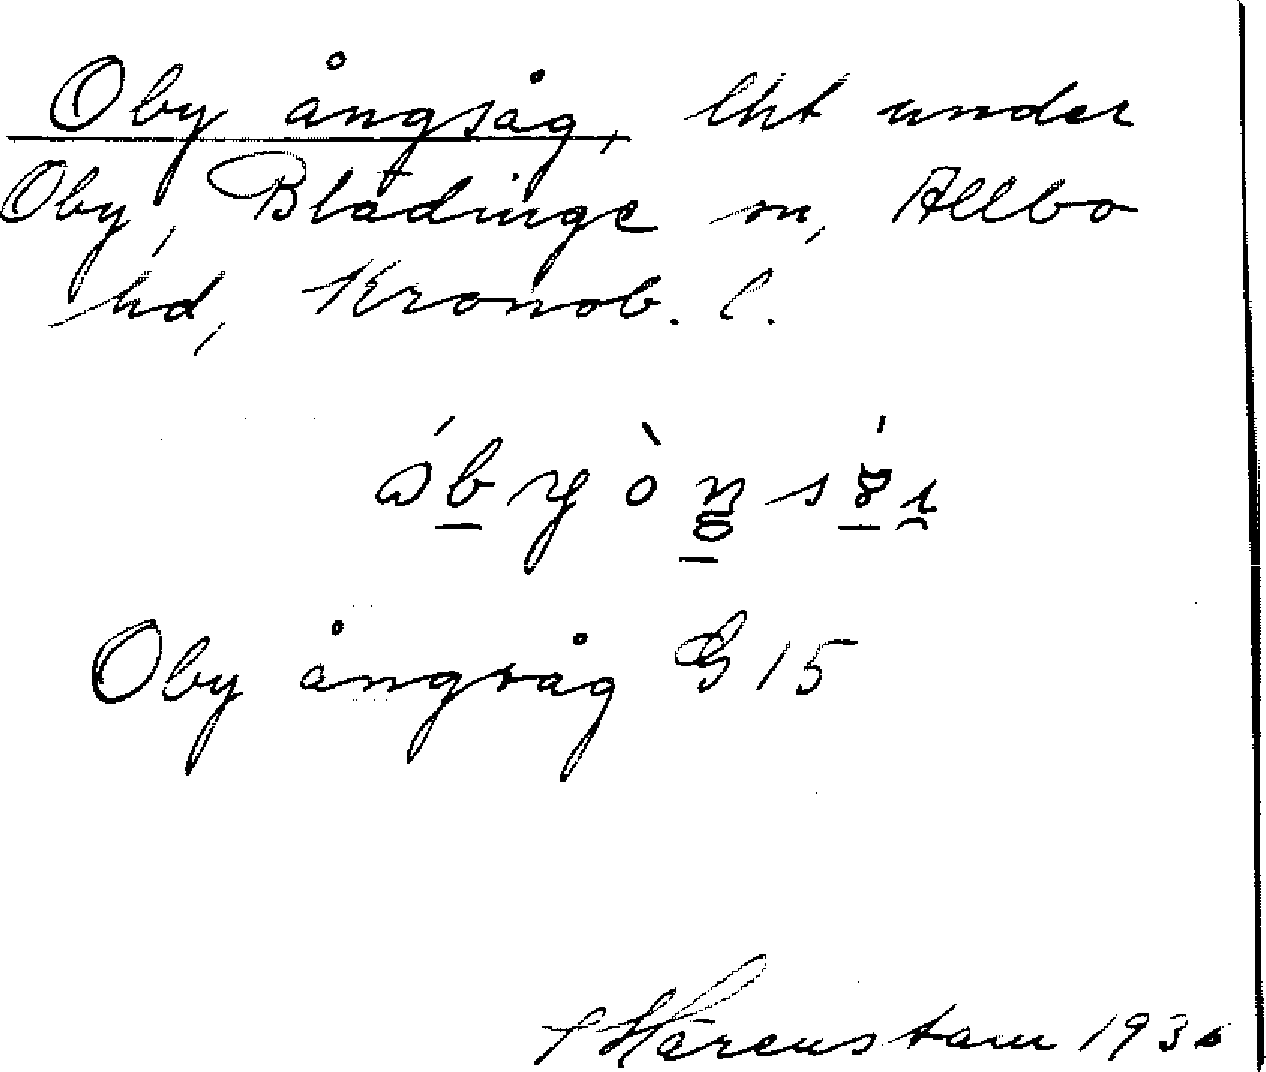 Oby ångsåg, lht under
Oby, Blädinge sn, Allbo
hd, Kronob. l.
Oby ångsåg G 15
Härenstam 193